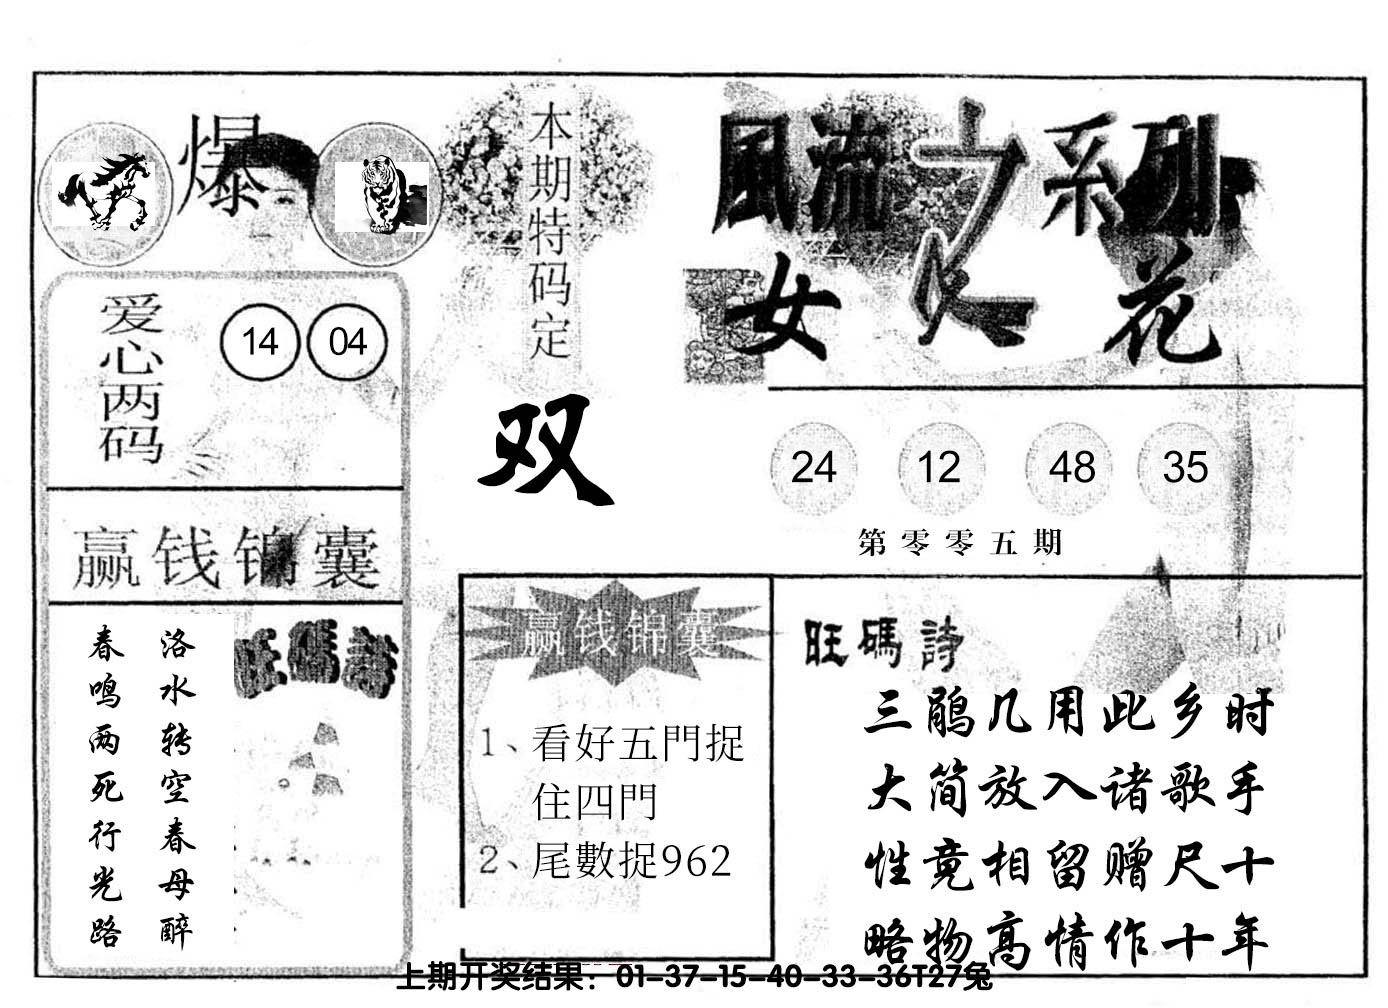 爆
本期特码定
双
風流之系列
女人花
爱心两码
14 04
24 12 48 35
第零零五期
赢钱锦囊
旺碼詩
洛水转空春母醉
春鸣两死行光路
赢钱锦囊
1、看好五門捉
住四門
2、尾數捉962
旺碼詩
三鹃几用此乡时
大简放入诸歌手
性竟相留赠尺十
略物高情作十年
上期开奖结果：01-37-15-40-33-36T27兔